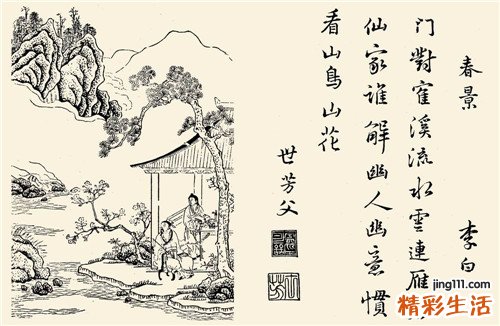 春景 李白
门對寉溪流水雲連雁
仙家誰解幽人幽意慣
看山鳥山花
世芳父
jing111.com
精彩生活